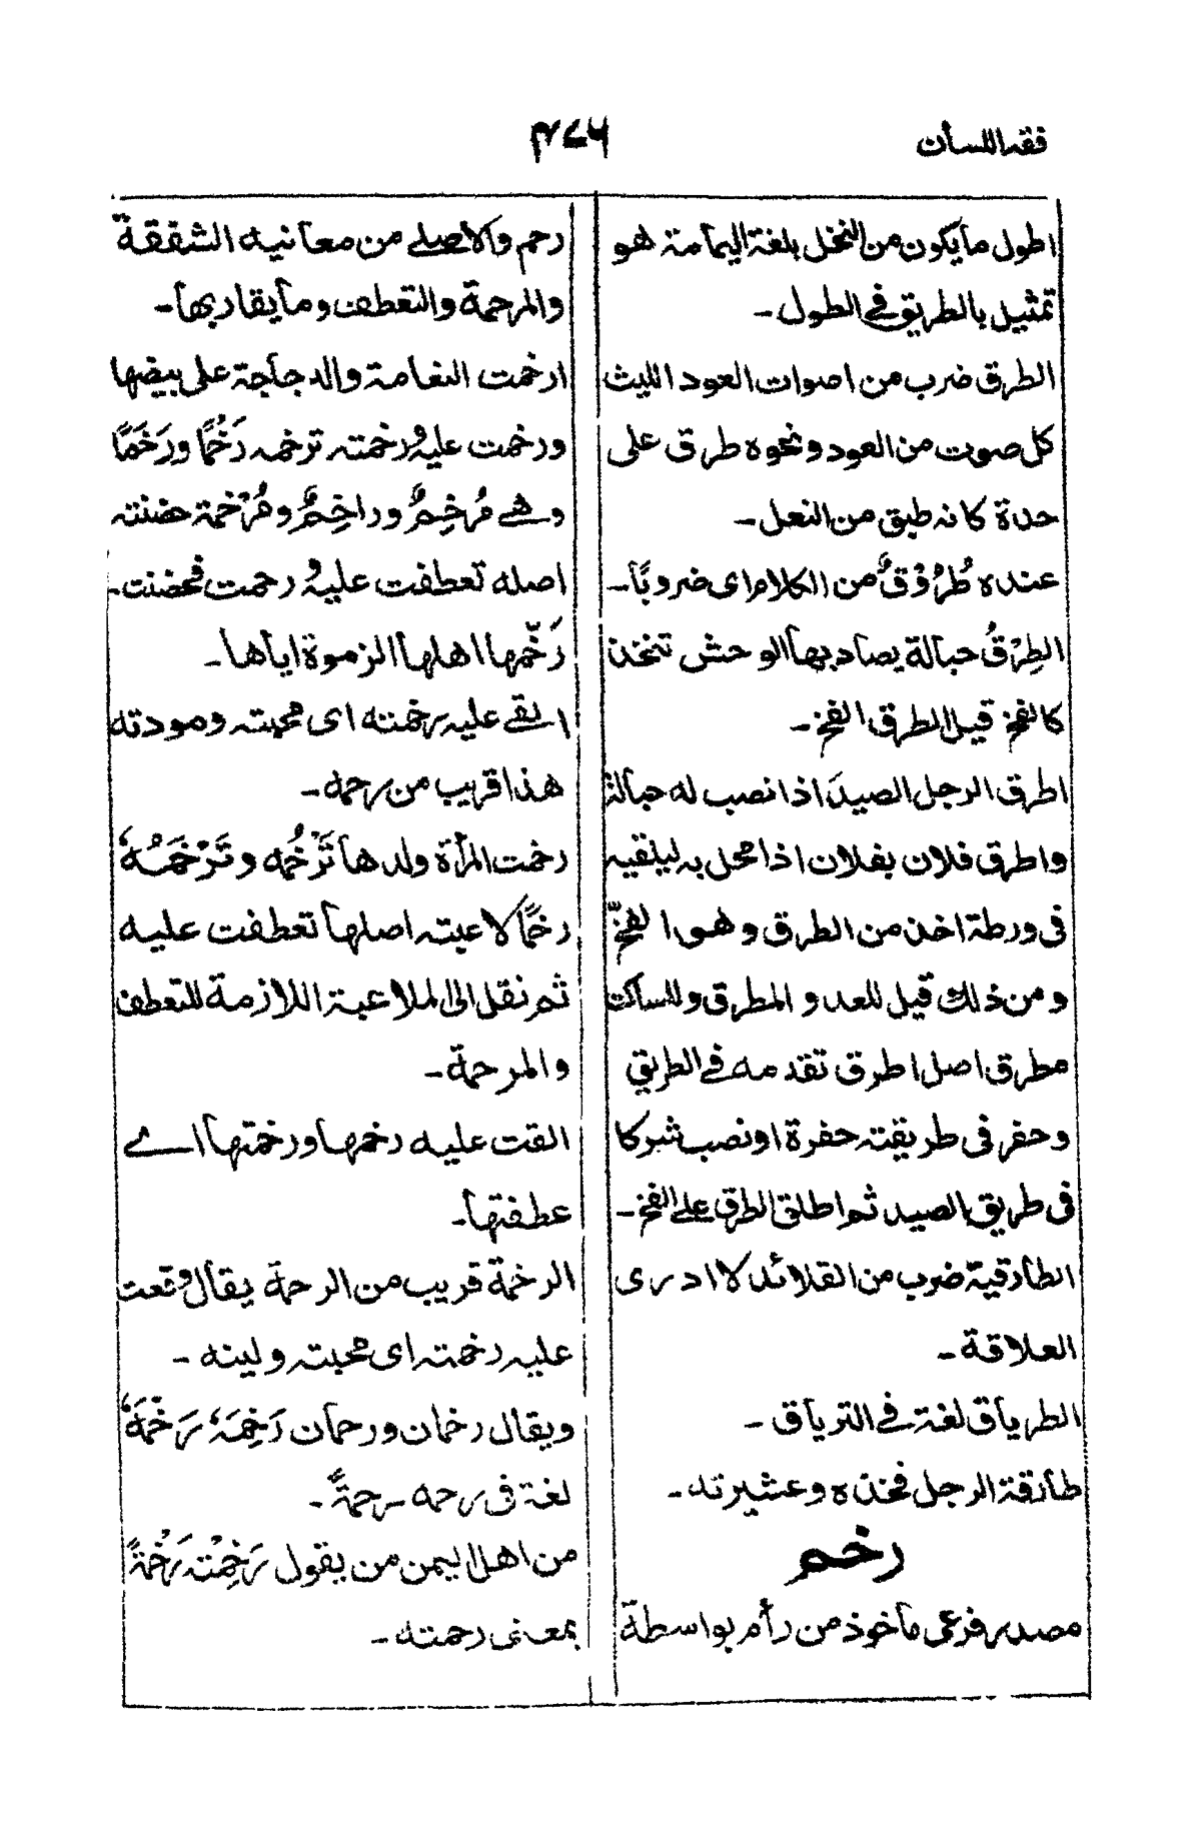 فقه اللسان
٤٧٦
اطول مايكون من النخل بلغة اليمامة هو
تمثيل بالطريق في الطول ـ
الطرق ضرب من اصوات العود الليث
كل صوت من العود ونحوه طرق على
حدة كانه طبق من النعل ـ
عنده طُرُوْقٌ من الكلام اى ضروبًا ـ
الطِرْقُ حبالة يصاد بها الوحش تتخذ
كالفخ قيل الطرق الفخ ـ
اطرق الرجل الصيدَ اذا نصب له حبالة
واطرق فلان بفلان اذا محل به ليلقيه
فى ورطة اخذ من الطرق وهو الفخّ
ومن ذلك قيل للعدو المطرق وللساكت
مطرق اصل اطرق تقدمه في الطريق
وحفر فى طريقته حفرة او نصب شركا
فى طريق الصيد ثم اطلق الطرق على الفخ ـ
الطارقية ضرب من القلائد لا ادرى
العلاقة ـ
الطرياق لغة في الترياق ـ
طارقة الرجل فخذه وعشيرته ـ
رخم
مصدر فرعى ماخوذ من رأم بواسطة
رحم والاصلي من معانيه الشفقة
والمرحمة والتعطف وما يقاربها ـ
ارخمت النعامة والدجاجة على بيضها
ورخمت عليه ورخمته ترخمه رَخْمًا ورَخَمًا
وهي مُرْخِمٌ وراخِمٌ ومُرْخمة حضنته
اصله تعطفت عليه ورحمت فحضنت ـ
رَخّمها اهلها الزموة اياها ـ
القي عليه رخمته اى محبته ومودته
هذا قريب من رحمه ـ
رخمت المرأة ولدها تَرْخُمه وتَرْخَمُهٗ
رخمًا لاعبته اصلها تعطفت عليه
ثم نقل الى الملاعبة اللازمة للتعطف
والمرحمة ـ
القت عليه رخمها ورخمتها اے
عطفتها ـ
الرخمة قريب من الرحمة يقال وقعت
عليه رخمته اى محبته ولينه ـ
ويقال رخمان ورحمان رَخِمَهٗ رَخْمَةً
لغة فى رحمه رحمةً ـ
من اهل اليمن من يقول رَخِمْته رَخْمَةً
بمعنى رحمته ـ